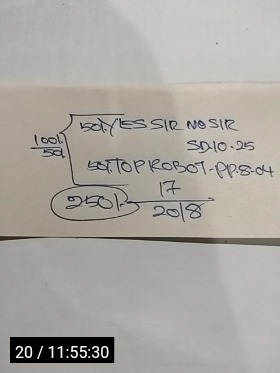 50% YES SIR NO SIR
100%
50%
SD.10.25
50% TOP ROBOT-PP.8-04
250%
17
2018
20 / 11:55:30